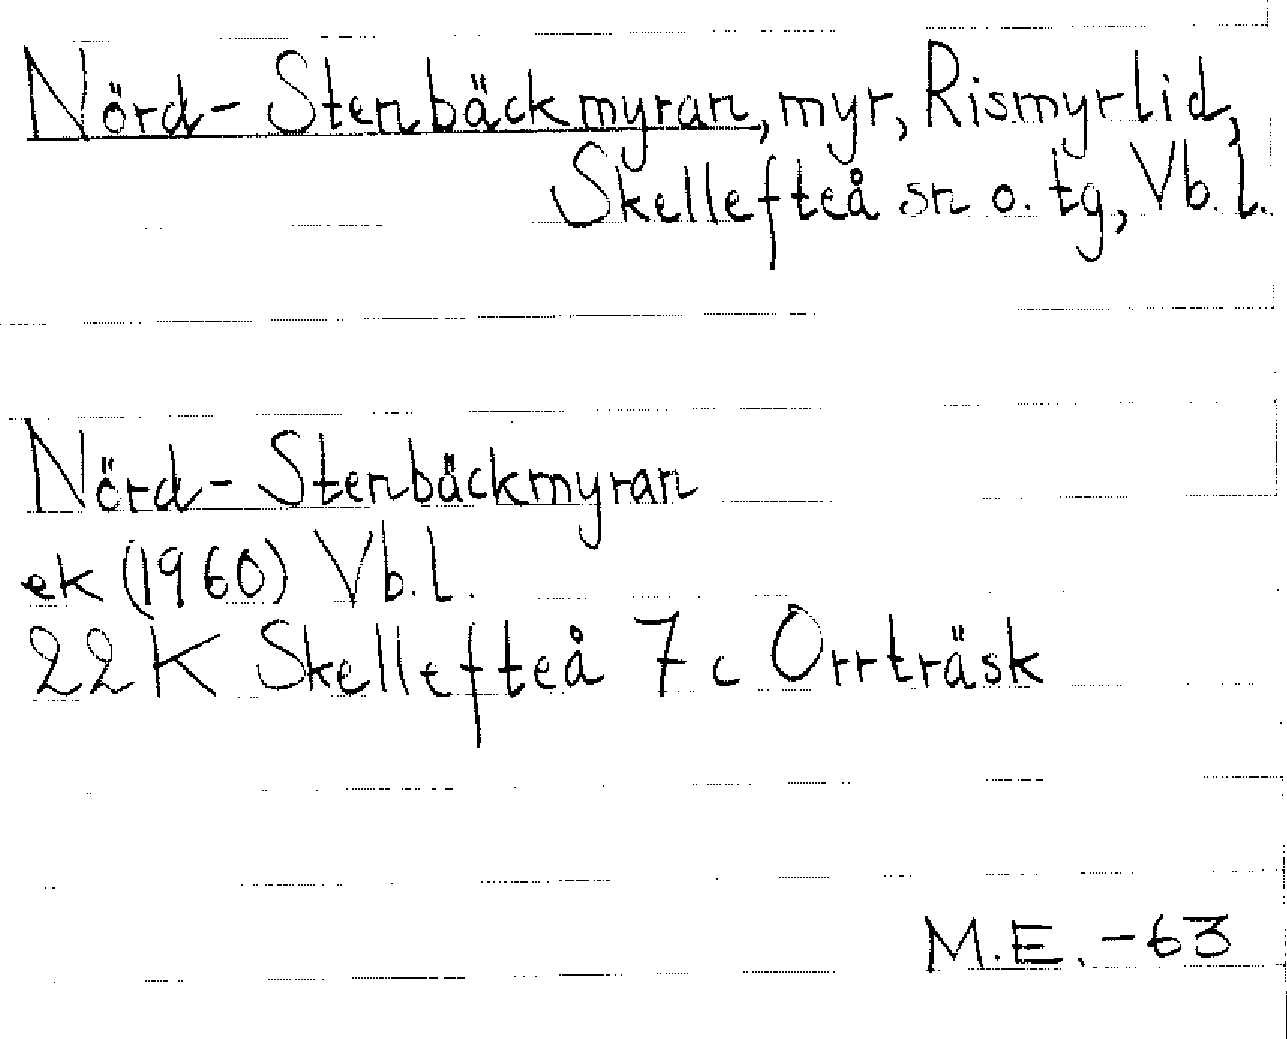 Nörd-Stenbäckmyran, myr, Rismyrlid,
Skellefteå sn o. tg, Vb. l.
Nörd-Stenbäckmyran
ek (1960) Vb. l.
22K Skellefteå 7c Orrträsk
M.E. -63